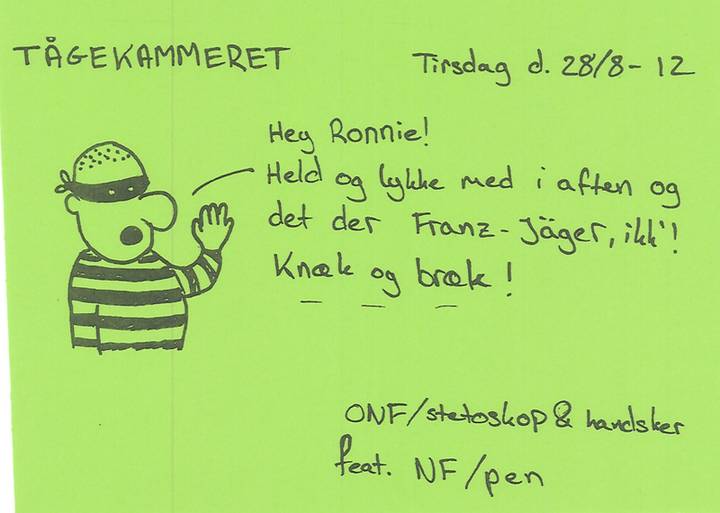 TÅGEKAMMERET
Tirsdag d. 28/8-12
Hey Ronnie!
Held og lykke med i aften og
det der Franz-Jäger, ikk'!
Knæk og bræk!
ONF/stetoskop & handsker
feat. NF/pen